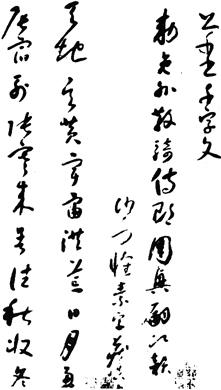 千字文
勅員外散騎侍郎周興嗣次韻
沙門懷素字藏真
天地玄黃宇宙洪荒日月盈
辰宿列張寒來暑往秋收冬